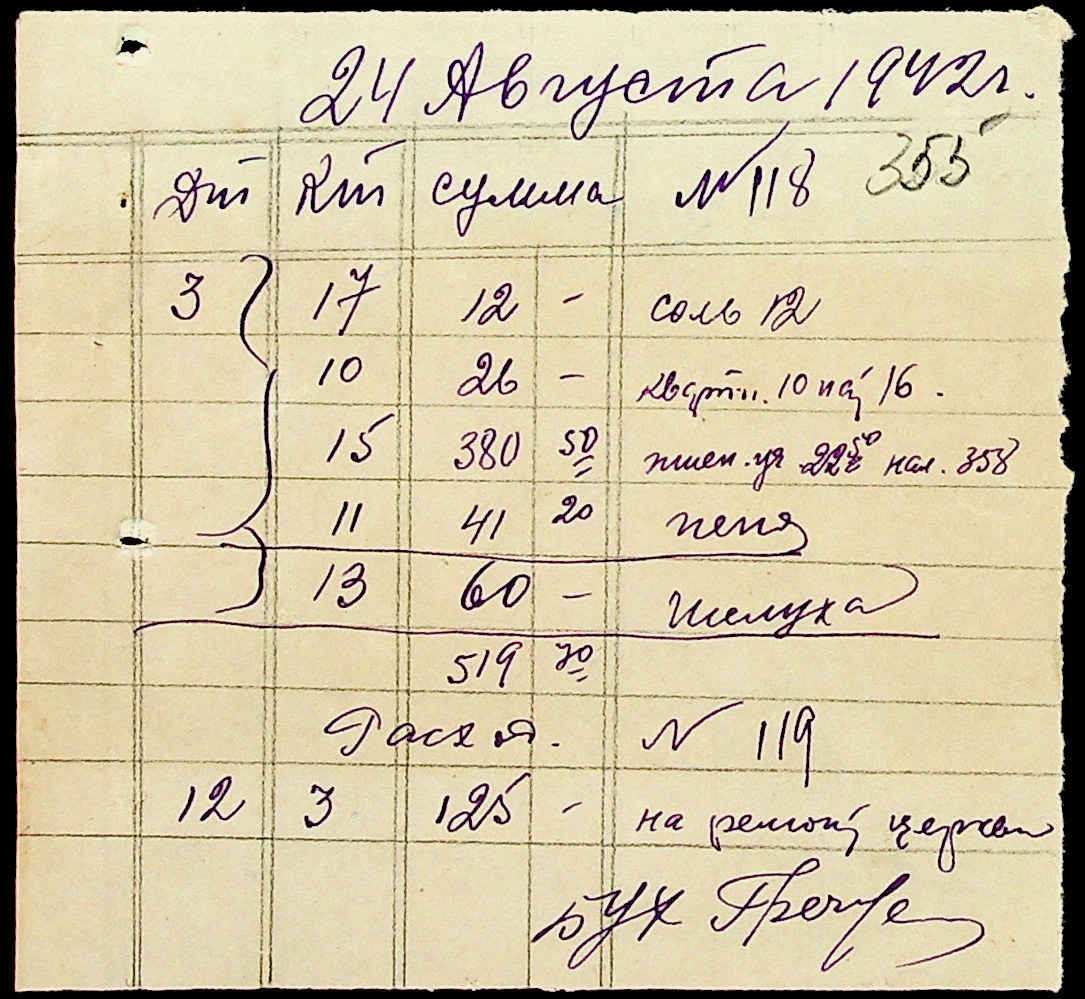 24 Августа 1942 г.
Дт Кт сумма № 118 355
3 17 12 - соль 12
10 26 - 10 16.
15 380 50 пшен. 22 50 нал. 358
11 41 20 пеня
13 60 - шелуха
519 70
Расх. № 119
12 3 125 - на ремонт церкви
Бух